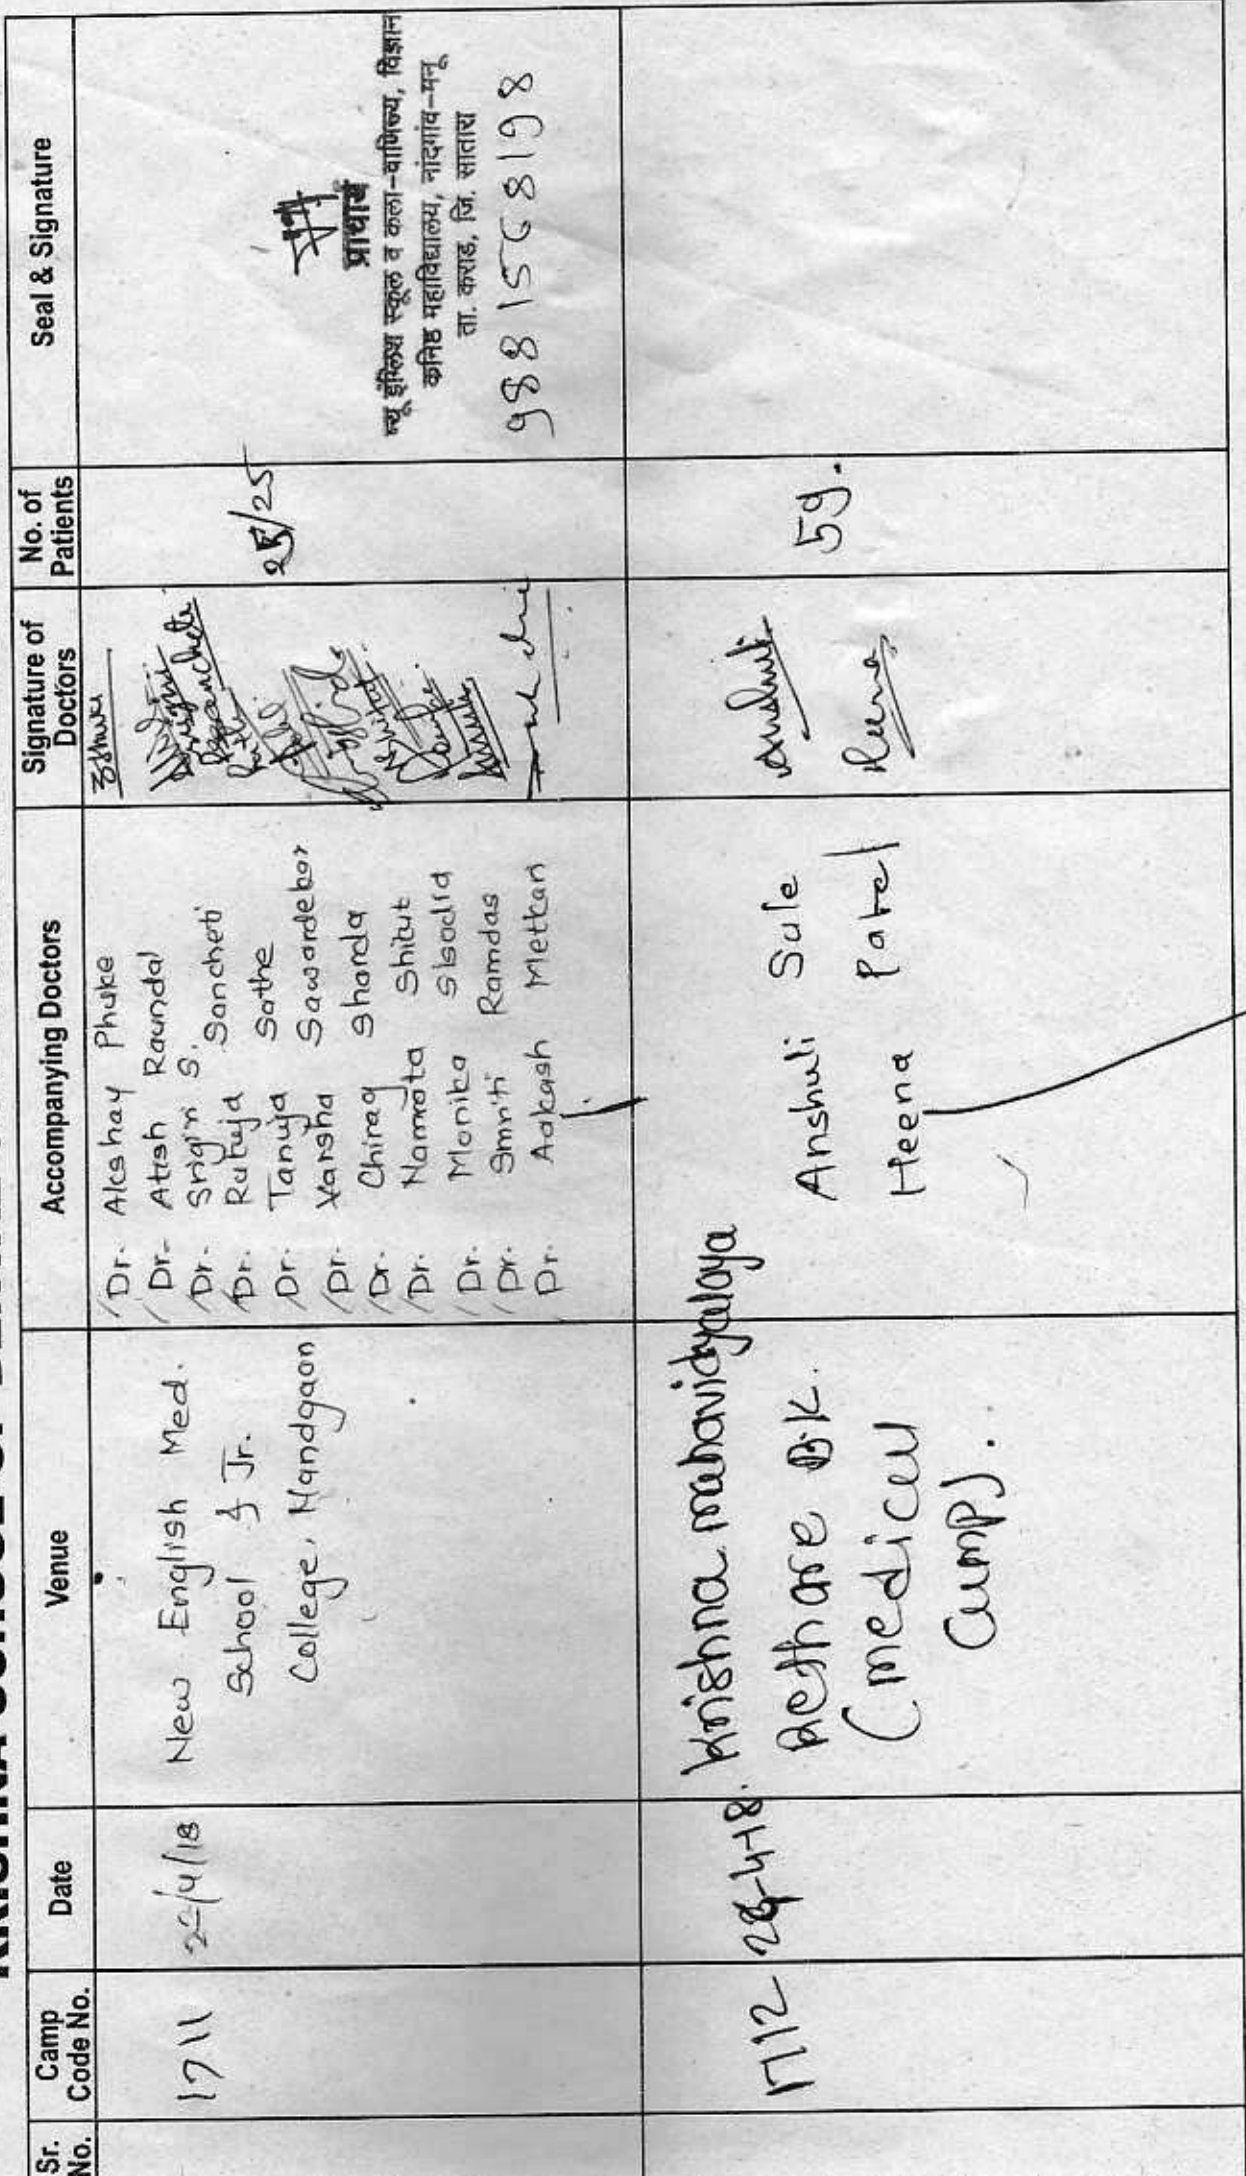 Sr. No.
Camp Code No.
Date
Venue
Accompanying Doctors
Signature of Doctors
No. of Patients
Seal & Signature
1711
22/4/18
New English Med.
School & Jr.
College, Nandgaon
Dr. Akshay Phuke
Dr. Atish Raundal
Dr. Srigiri S.
Dr. Rutuja Sancheti
Dr. Tanuja Sathe
Dr. Varsha Sawardekar
Dr. Chirag Sharda
Dr. Namrata Shitut
Dr. Monika Sisodia
Dr. Smriti Ramdas
Dr. Aakash Metkari
/25
प्राचार्य
न्यू इंग्लिश स्कूल व कला-वाणिज्य, विज्ञान
कनिष्ठ महाविद्यालय, नांदगांव-मनू
ता. कराड, जि. सातारा
9881568198
1712
-4-18.
Krishna mahavidyalaya
Rethare BK.
(medical
camp).
Anshuli Sule
Heena Patel
Anshuli
Heena
59.